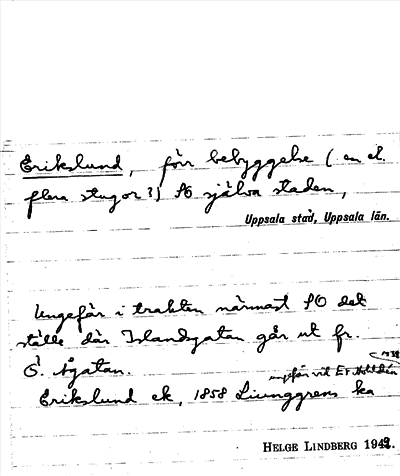 Erikslund, förr bebyggelse (en el.
flera stugor?) SO själva staden,
Uppsala stad, Uppsala län.
Ungefär i trakten närmast SO det
ställe där Islandsgatan går ut fr.
Ö. Ågatan.
ungefär vid
Erikslund ek, 1858 Ljunggrens ka
HELGE LINDBERG 1942.